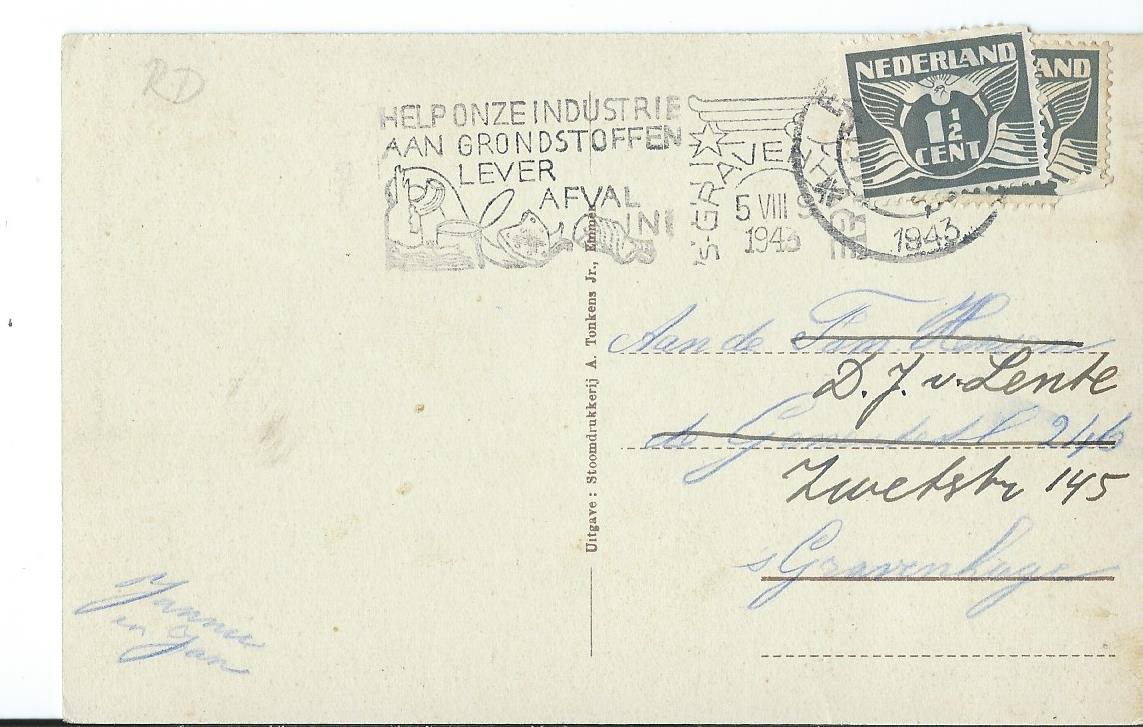 RD
HELP ONZE INDUSTRIE
AAN GRONDSTOFFEN
LEVER
AFVAL
IN!
'S-GRAVE
5 VIII
1943
1943
NEDERLAND
1 1/2
CENT
AND
Uitgave: Stoomdrukkerij A. Tonkens Jr., Emmen
Aan de Fam.
D. J. v. Lente
de
Zwetstr 145
s Gravenhage
Jannie
en Jan